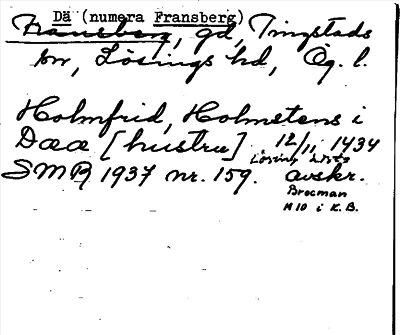 Dä (numera Fransberg)
Fransberg, gd, Tingstads
sn, Lösings hd, Ög. l.
Holmfrid, Holmstens i
Daa [hustru]. 12/11 1434
Lösing
SMR 1937 nr. 159. avskr.
Brocman
M 10 i K.B.